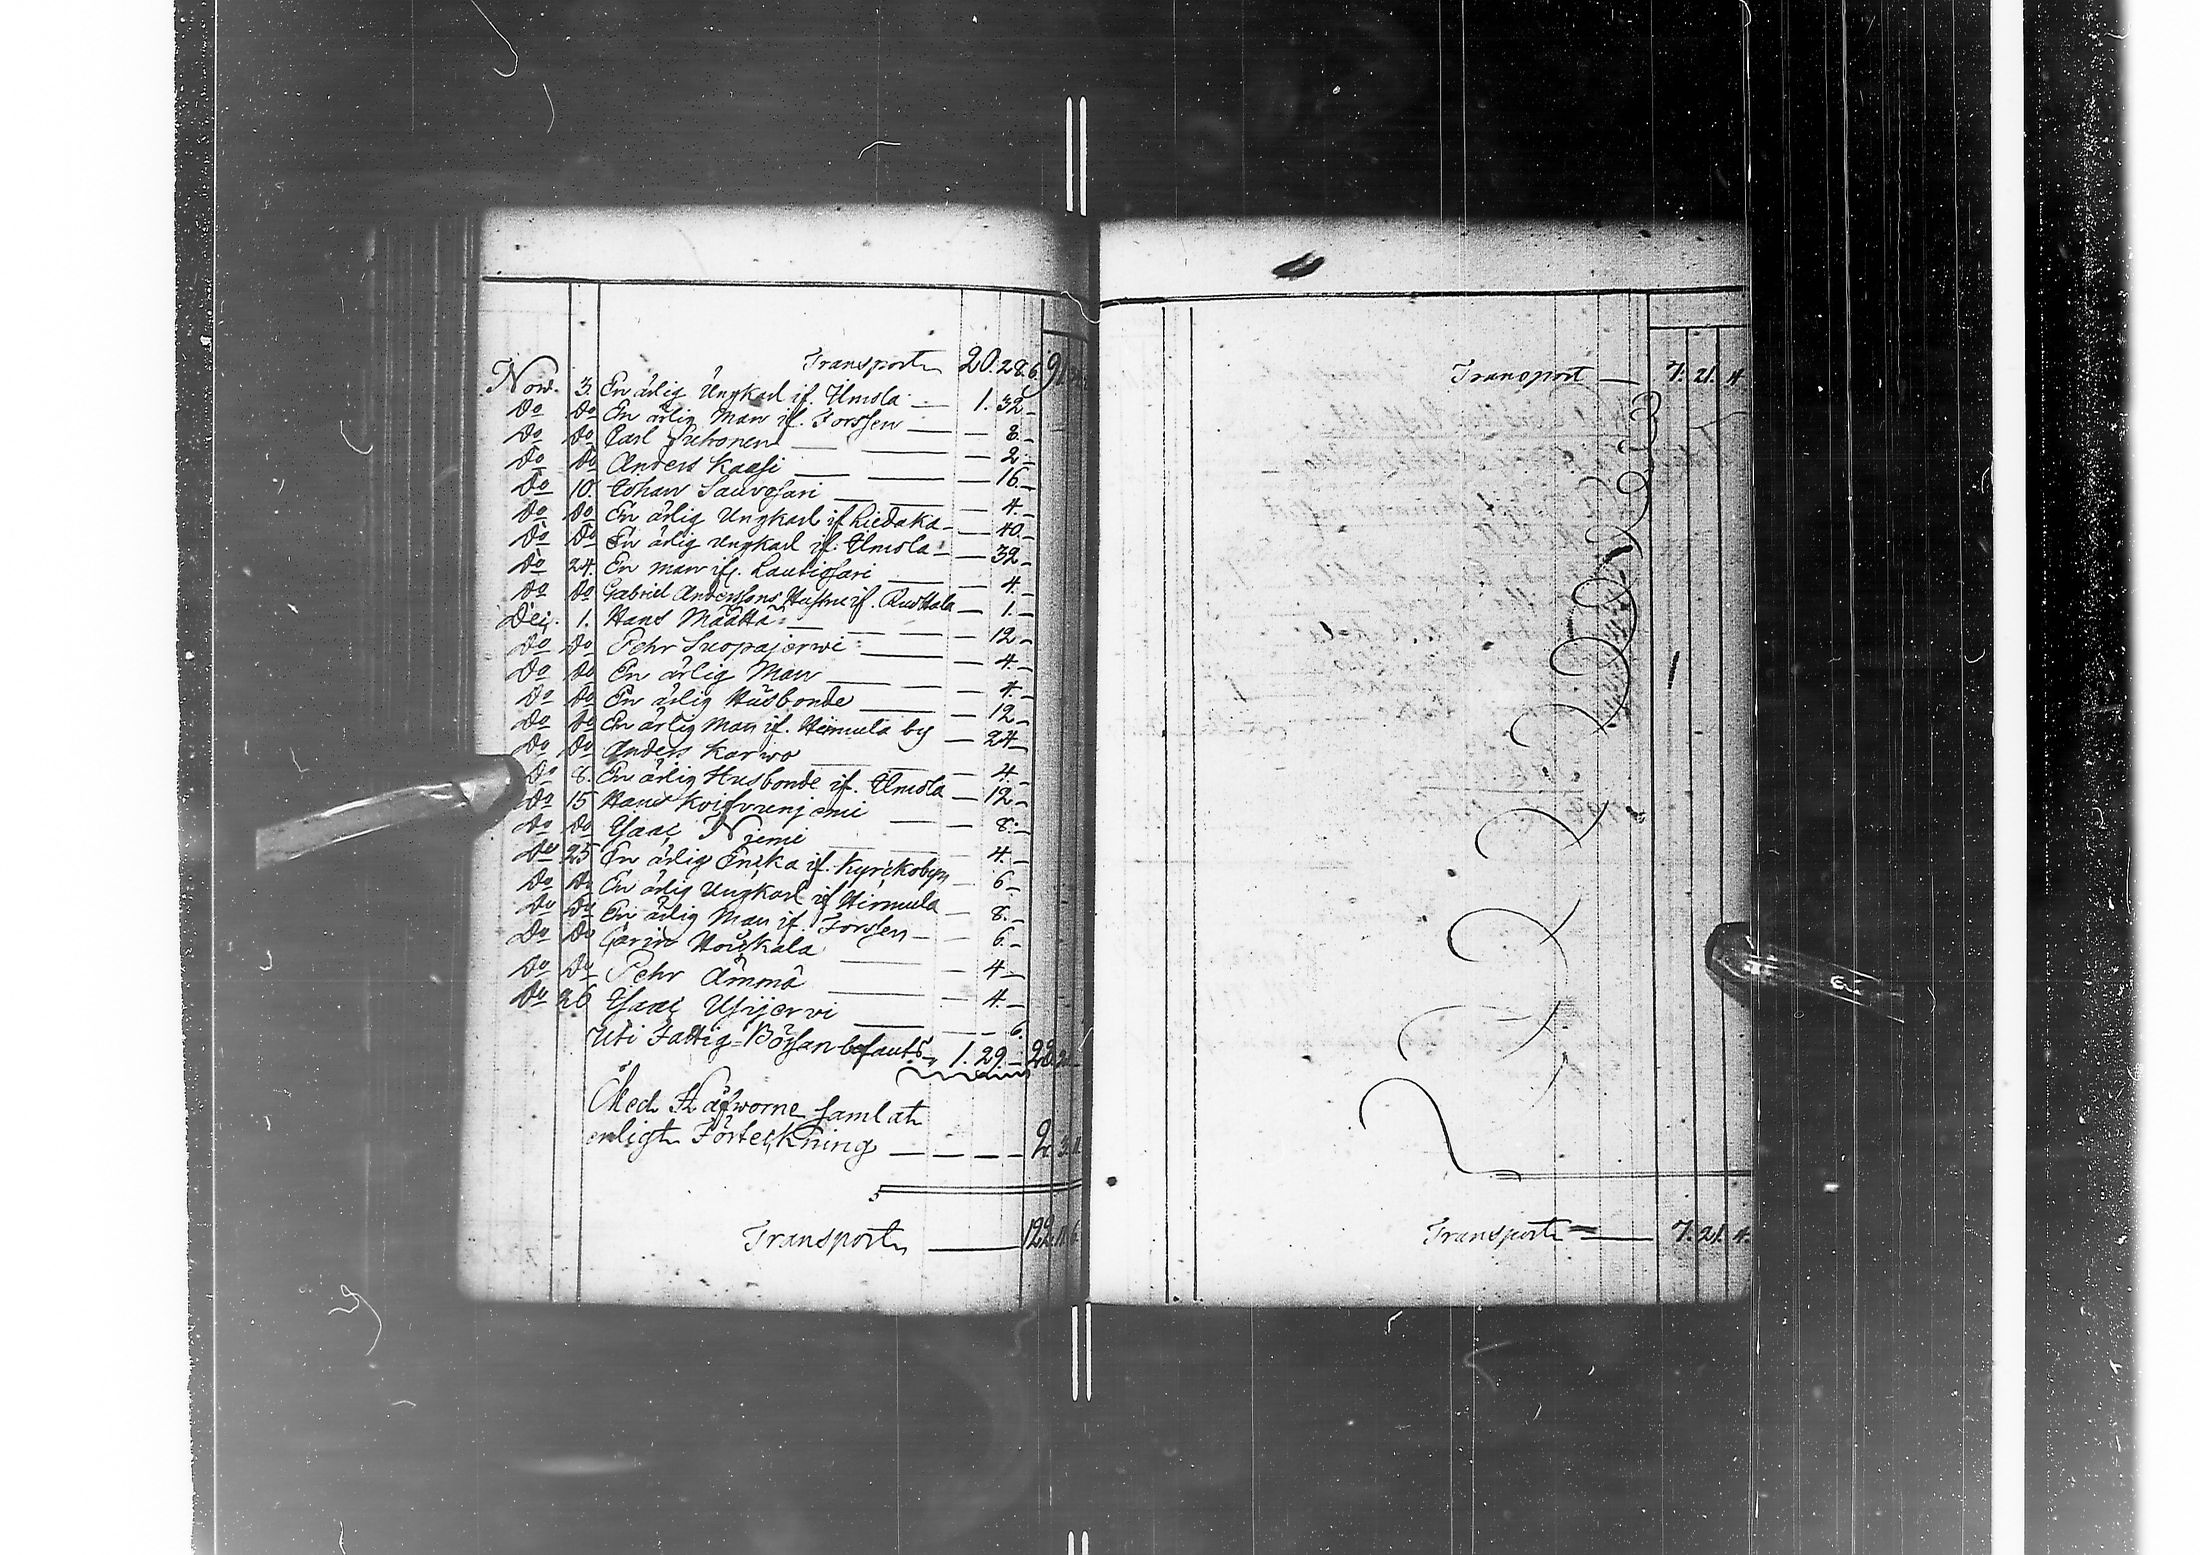 Transport 20. 28. 6
Nov. 3. En ärlig Ungkarl if. Ilmola — 1. 32 —
Do Do En ärlig Man if. Forssen — — 8. —
Do Do Carl Suhonen — — 2. —
Do Do Anders Kaasi — — 16 —
Do 10. Johan Sauvosari — — 4. —
Do Do En ärlig Ungkarl if Liedaka — 40. —
Do Do En ärlig Ungkarl if. Ilmola — 32 —
Do 24. En man if. Lautiosari — — 4. —
Do Do Gabriel Anderssons Hustru if. — 1. —
Dec. 1. Hans Määttä — — 12 —
Do Do Pehr Suopajerwi — — 4. —
Do Do En ärlig Man — — 4. —
Do Do En ärlig Husbonde — — 12 —
Do Do En ärlig Man if. Hirmula by — 24 —
Do Do Anders Karwo — — 4. —
Do 8. En ärlig Husbonde if. Ilmola — 12 —
Do 15 Hans — — 8. —
Do Do Isaac Niemi — — 4. —
Do 25 En ärlig Enka if. Kyrkobyn — 6 —
Do Do En ärlig Ungkarl if Hirmula — 8. —
Do Do En ärlig Man if. Forssen — — 6. —
Do Do Carin Houskala — — 4. —
Do Do Pehr Ämmä — — 4. —
Do 26 Isaac — — 6.
Uti Fattig-Börsan befants 1. 29. —
Med Håfworne samlat
enligt Förteckning — — — — 2.
Transport — 122.
Transport — 7. 21. 4
Transport — 7. 21. 4.